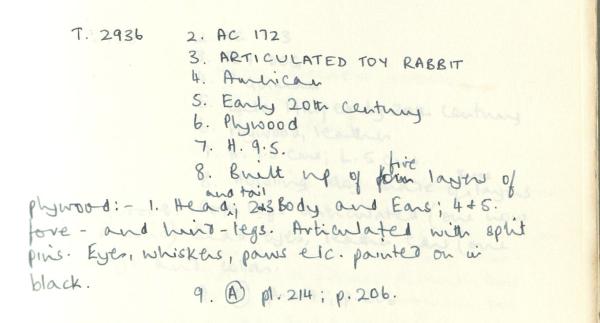 T. 2936 2. AC 172
3. ARTICULATED TOY RABBIT
4. American
5. Early 20th century
6. Plywood
7. H. 9.5.
8. Built up of five layers of
plywood:- 1. Head and tail; 2+3 Body and Ears; 4 & 5.
fore- and hind-legs. Articulated with split
pins. Eyes, whiskers, paws etc. painted on in
black.
9. (A) pl. 214; p. 206.